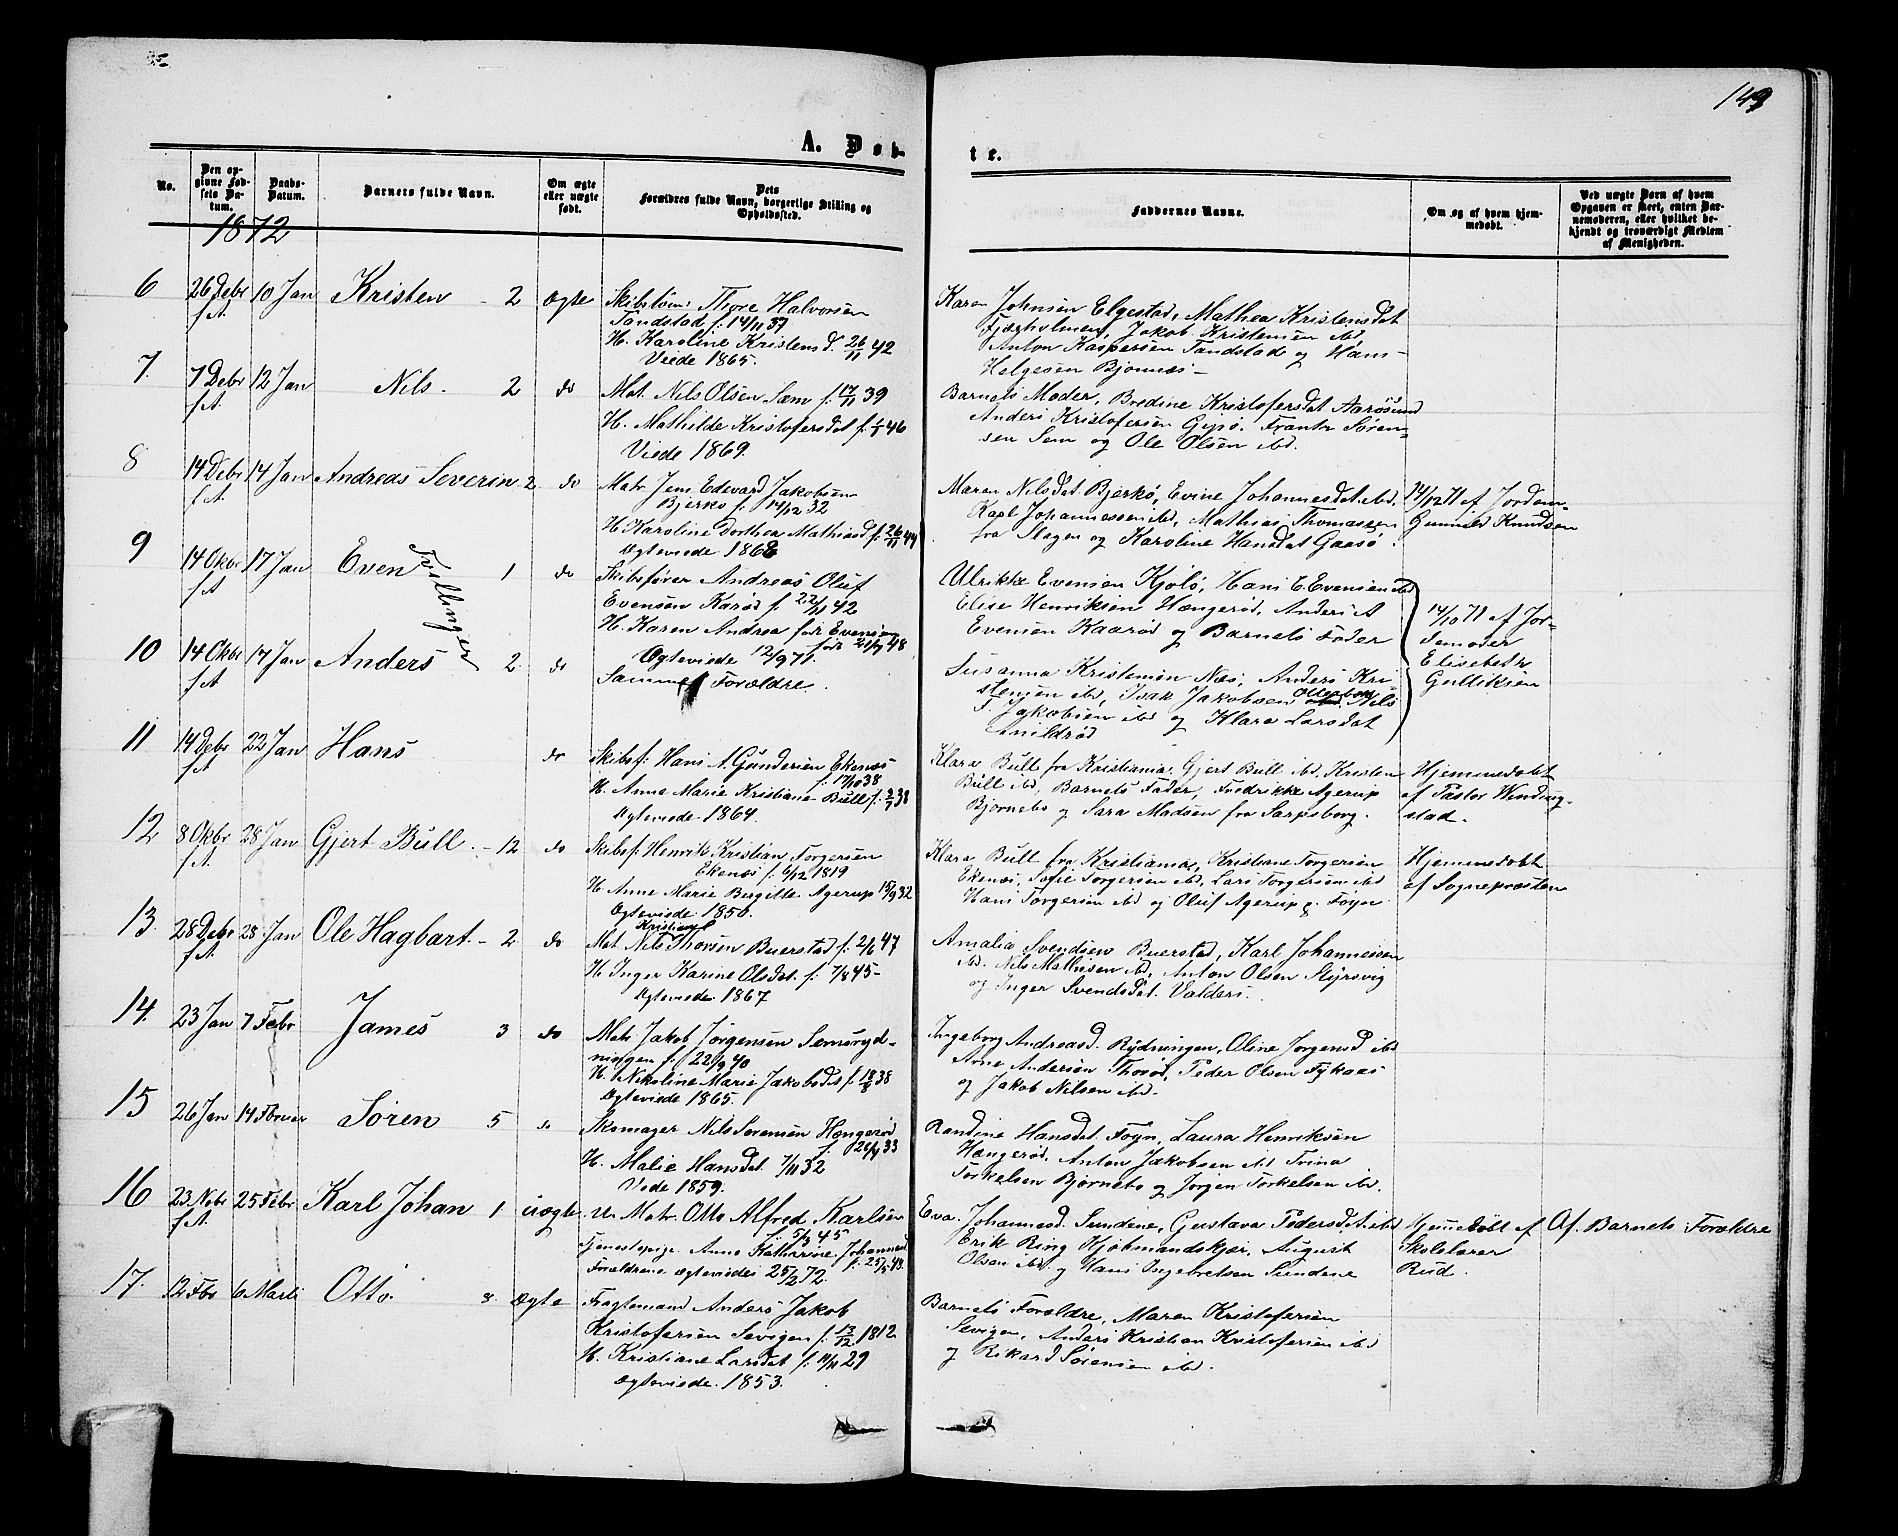 149
A. Døb-
te.
No.
Den op-
givne Fød-
sels Da-
tum.
Daabs-
Datum.
Barnets fulde Navn.
Om ægte
eller uægte
født.
Dets
Forældres fulde Navn, borgerlige Stilling og
Opholdssted.
Faddernes Navne.
Om og af hvem hjem-
medøbt.
Ved uægte Børn af hvem
Opgaven er skeet, enten Bar-
nemoderen, eller hvilket be-
kjendt og troværdigt Medlem
af Menigheden.
1872
6 26 Debr 10 Jan Kristen - 2 ægte
f A.
Thore Halvorsen
Tandstad f. 14/11 37
H. Karoline Kristensd. 26/11 42
Viede 1865.
Karen Johnsen Elgestad, Mathea Kristensdat
Fjærholmen, Jakob Kristensen ibd
Anton Kaspersen Tandstad og Hans
Helgesen Bjønnes -
7. 7 Debr 12 Jan Nils. 2 do
f A.
Mat. Nils Olsen Sem f. 17/11 39
H. Mathilde Kristofersdat f. 1/1 46
Viede 1869.
Barnets Moder, Bredine Kristofersdat Aarøsund
Anders Kristofersen Gipø. Frantz Søren-
sen Sem og Ole Olsen ibd.
8 14 Debr 14 Jan Andreas Severin 2 do
f A.
Matr Jens Edevard Jakobsen
Bjerkø f. 14/12 32
H. Karoline Dorthea Mathiasd f. 26/11 44
Ægteviede 1868
Maren Nilsdat. Bjerkø, Evine Johannesdat. ibd.
Karl Johannessen ibd, Mathias Thomassen
fra Slagen og Karoline Hansdat Gaasø.
14/12 71 af Jordem-
Gunnild Knudsen
9 14 Okbr 17 Jan Even 1 do
f A.
Tvillinger
Skibsfører Andreas Oluf
Evensen Karød f. 22/11 42
H. Karen Andrea før Evensen
før 21/9 48
Ægteviede 12/9 71.
Ulrikke Evensen Kjølø, Hans E. Evensen ibd
Elise Henriksen Hængerød, Anders A
Evensen Kaarød og Barnets Fader
14/10 71 af Jor-
demoder
Elisebeth
Gulliksen
10 14 Okbr 17 Jan Anders 2 do
f A.
Samme Forældre.
Susanna Kristensen Næs, Anders Kri
stensen ibd, Isak Jakobsen Nils
T. Jakobsen ibd og Klara Larsdat
11 14 Debr 22 Jan Hans do
f A
Skibsf. Hans A. Gundersen Ekenæs
f. 17/10 38
H. Anne Marie Kristiane Bull f. 2/7 38
Ægteviede 1864.
Klara Bull fra Kristiania. Gjert Bull ibd, Kristen
Bull ibd, Barnets Fader, Fredrikke Agerup
Bjørnebo og Sara Madsen fra Sarpsborg.
Hjemmedøbt
af Pastor Winding-
stad.
12 8 Okbr 28 Jan Gjert Bull. - 12 do
f A.
Skibsf. Henrik Kristian Torgersen
Ekenæs f. 6/12 1819
H. Anne Marie Bergitte Agerup 15/9 32
Ægteviede 1850.
Klara Bull fra Kristiania, Kristiane Torgersen
Ekenæs, Sofie Torgersen ibd, Lars Torgersen ibd
Hans Torgersen ibd og Oluf Agerup p. Føyn
Hjemmedøbt
af Sognepræsten
13. 28 Debr 28 Jan Ole Hagbart. - 2 do
f A.
Kristian
Mat. Nils Thorsen Buerstad f. 2/6 47
H Inger Karine Olsdat. f. 7/8 45 -
Ægteviede 1867
Amalia Svendsen Buerstad, Karl Johannessen
ibd. Nils Mathisen ibd, Anton Olsen Styrsvig
og Inger Svendsdat. Valders.
14. 23 Jan 7 Febr James 3 do
Matr Jakob Jørgensen Semsryd-
ningen f. 22/9 40
H. Nikoline Marie Jakobsdat f. 18/8 38
Ægteviede 1865.
Ingeborg Andreasd. Rydningen, Oline Jørgensd ibd
Arne Andersen Thorød, Peder Olsen Fykaas
og Jakob Nilsen ibd.
15 26 Jan 14 Februar Søren 5 do
Skomager Nils Sørensen Hængerød
f. 26/4 33
H. Malie Hansdat 7/11 32
Viede 1859.
Randine Hansdat Føyn, Laura Henriksen
Hængerød, Anton Jakobsen ibd Trina
Torkelsen Bjørnebo og Jørgen Torkelsen ibd.
16 23 Nobr 25 Febr Karl Johan 1 uægte
f A.
Matr. Otto Alfred Karlsen
5/3 45
Tjenestepige Anne Katharine Johannesd
f. 25/5 43.
Forældrene ægteviedes 25/2 72.
Eva. Johannesd. Sundene, Gustava Pedersdat ibd
Erik Ring Kjøbmandskjær, August
Olsen ibd og Hans Ingebretsen Sundene
Hjemmedøbt af
Skolelærer
Rud.
Af. Barnets Forældre
17. 12 Fbr 6 Marts Otto. 8 Ægte
Fragtemand Anders Jakob
Kristofersen Sevigen f. 13/12 1812
H. Kristiane Larsdat f. 11/11 29
Ægteviede 1853.
Barnets Forældre, Maren Kristofersen
Sevigen, Anders Kristian Kristofersen ibd
og Rikard Sørensen ibd.